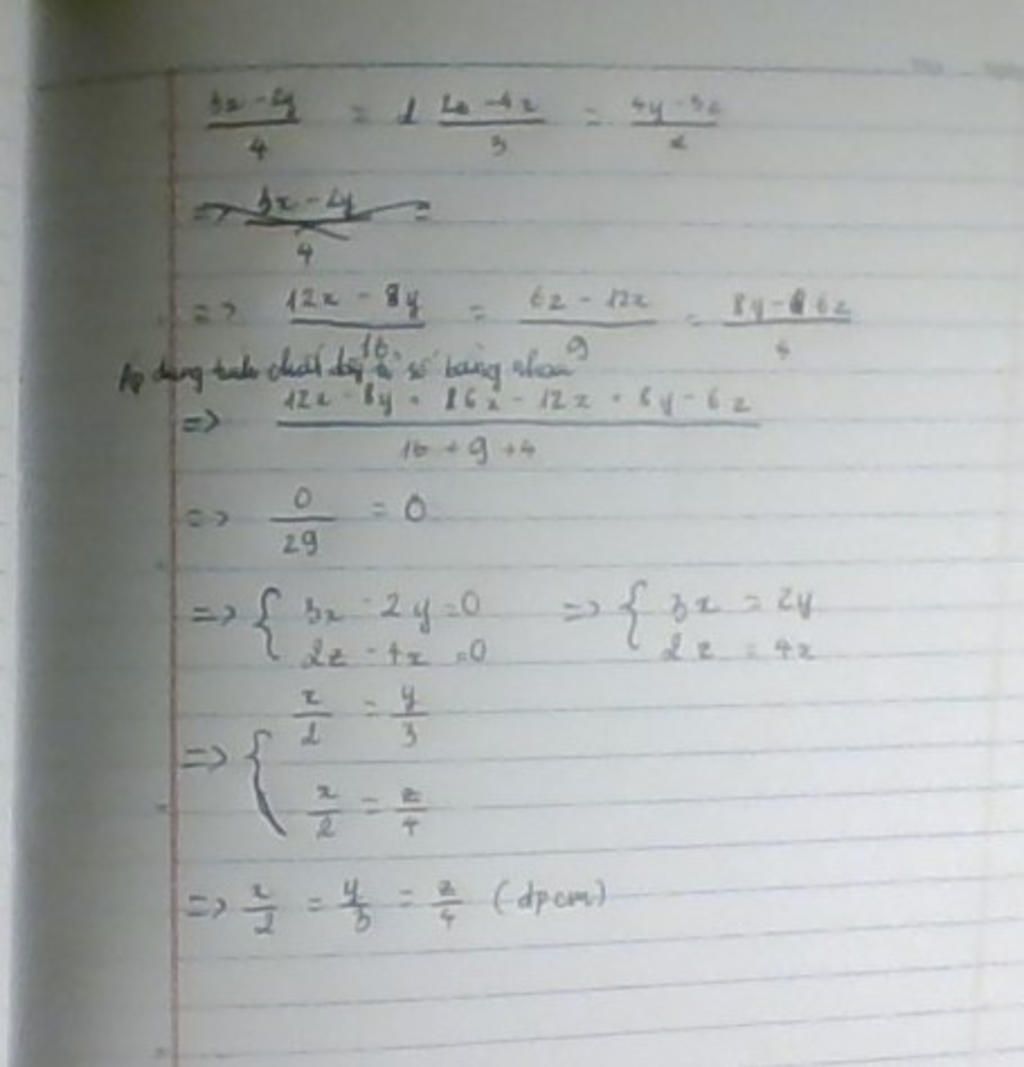 3x - 2y / 4 = 2z - 4x / 3 = 4y - 3z / 2
=> 3x - 2y / 4 =
=> 12x - 8y / 16 = 6z - 12x / 9 = 8y - 6z / 4
Áp dụng tính chất dãy tỉ số bằng nhau
=> 12x - 8y + 6z - 12x + 8y - 6z / 16 + 9 + 4
=> 0 / 29 = 0
=> { 3x - 2y = 0 => { 3x = 2y
2z - 4x = 0 2z = 4x
=> { x / 2 = y / 3
x / 2 = z / 4
=> x / 2 = y / 3 = z / 4 (đpcm)